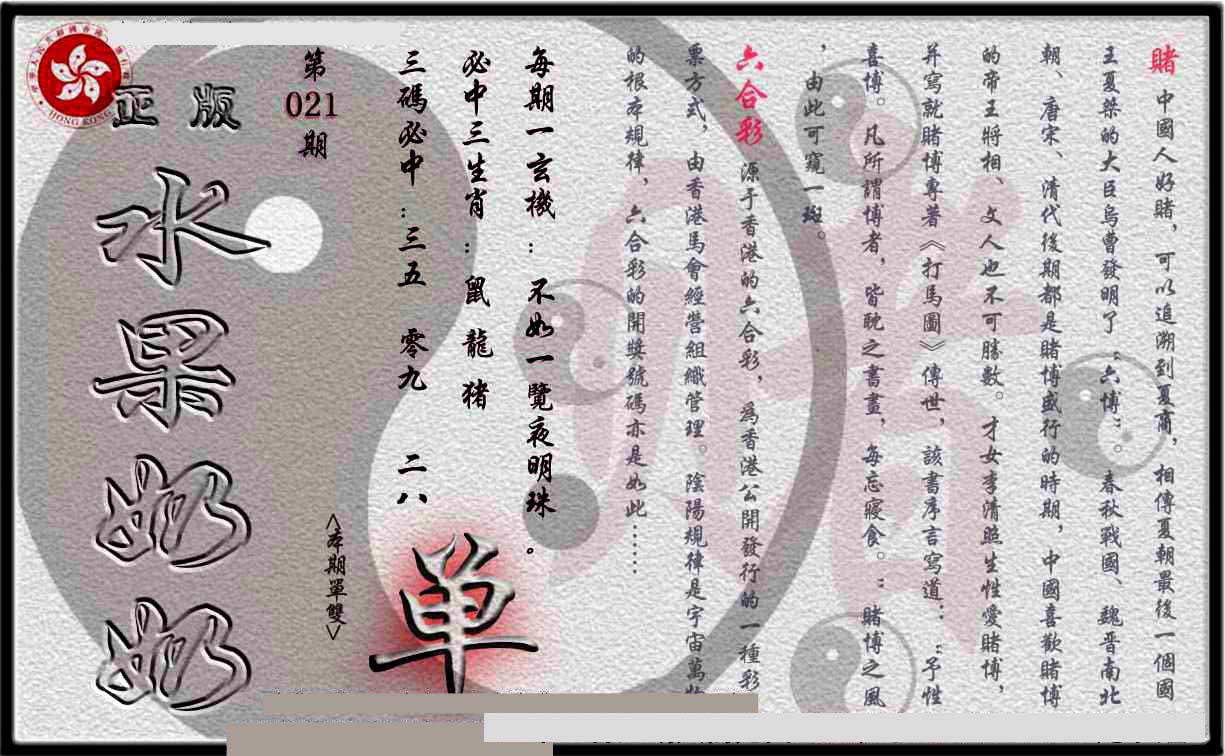 賭 中國人好賭，可以追溯到夏商，相傳夏朝最後一個國
王夏桀的大臣烏曹發明了“六博”。春秋戰國、魏晉南北
朝、唐宋、清代後期都是賭博盛行的時期，中國喜歡賭博
的帝王將相、文人也不可勝數。才女李清照生性愛賭博，
并寫就賭博專著《打馬圖》傳世，該書序言寫道：“予性
喜博。凡所謂博者，皆耽之書畫，每忘寢食。”賭博之風
，由此可窺一斑。
六合彩 源于香港的六合彩，為香港公開發行的一種彩
票方式，由香港馬會經營組織管理。陰陽規律是宇宙萬物
的根本規律，六合彩的開獎號碼亦是如此……
每期一玄機：不如一覽夜明珠。
必中三生肖：鼠 龍 猪
三碼必中：三五 零九 二八
单
<本期單雙>
第021期
正版
水果奶奶
HONG KONG